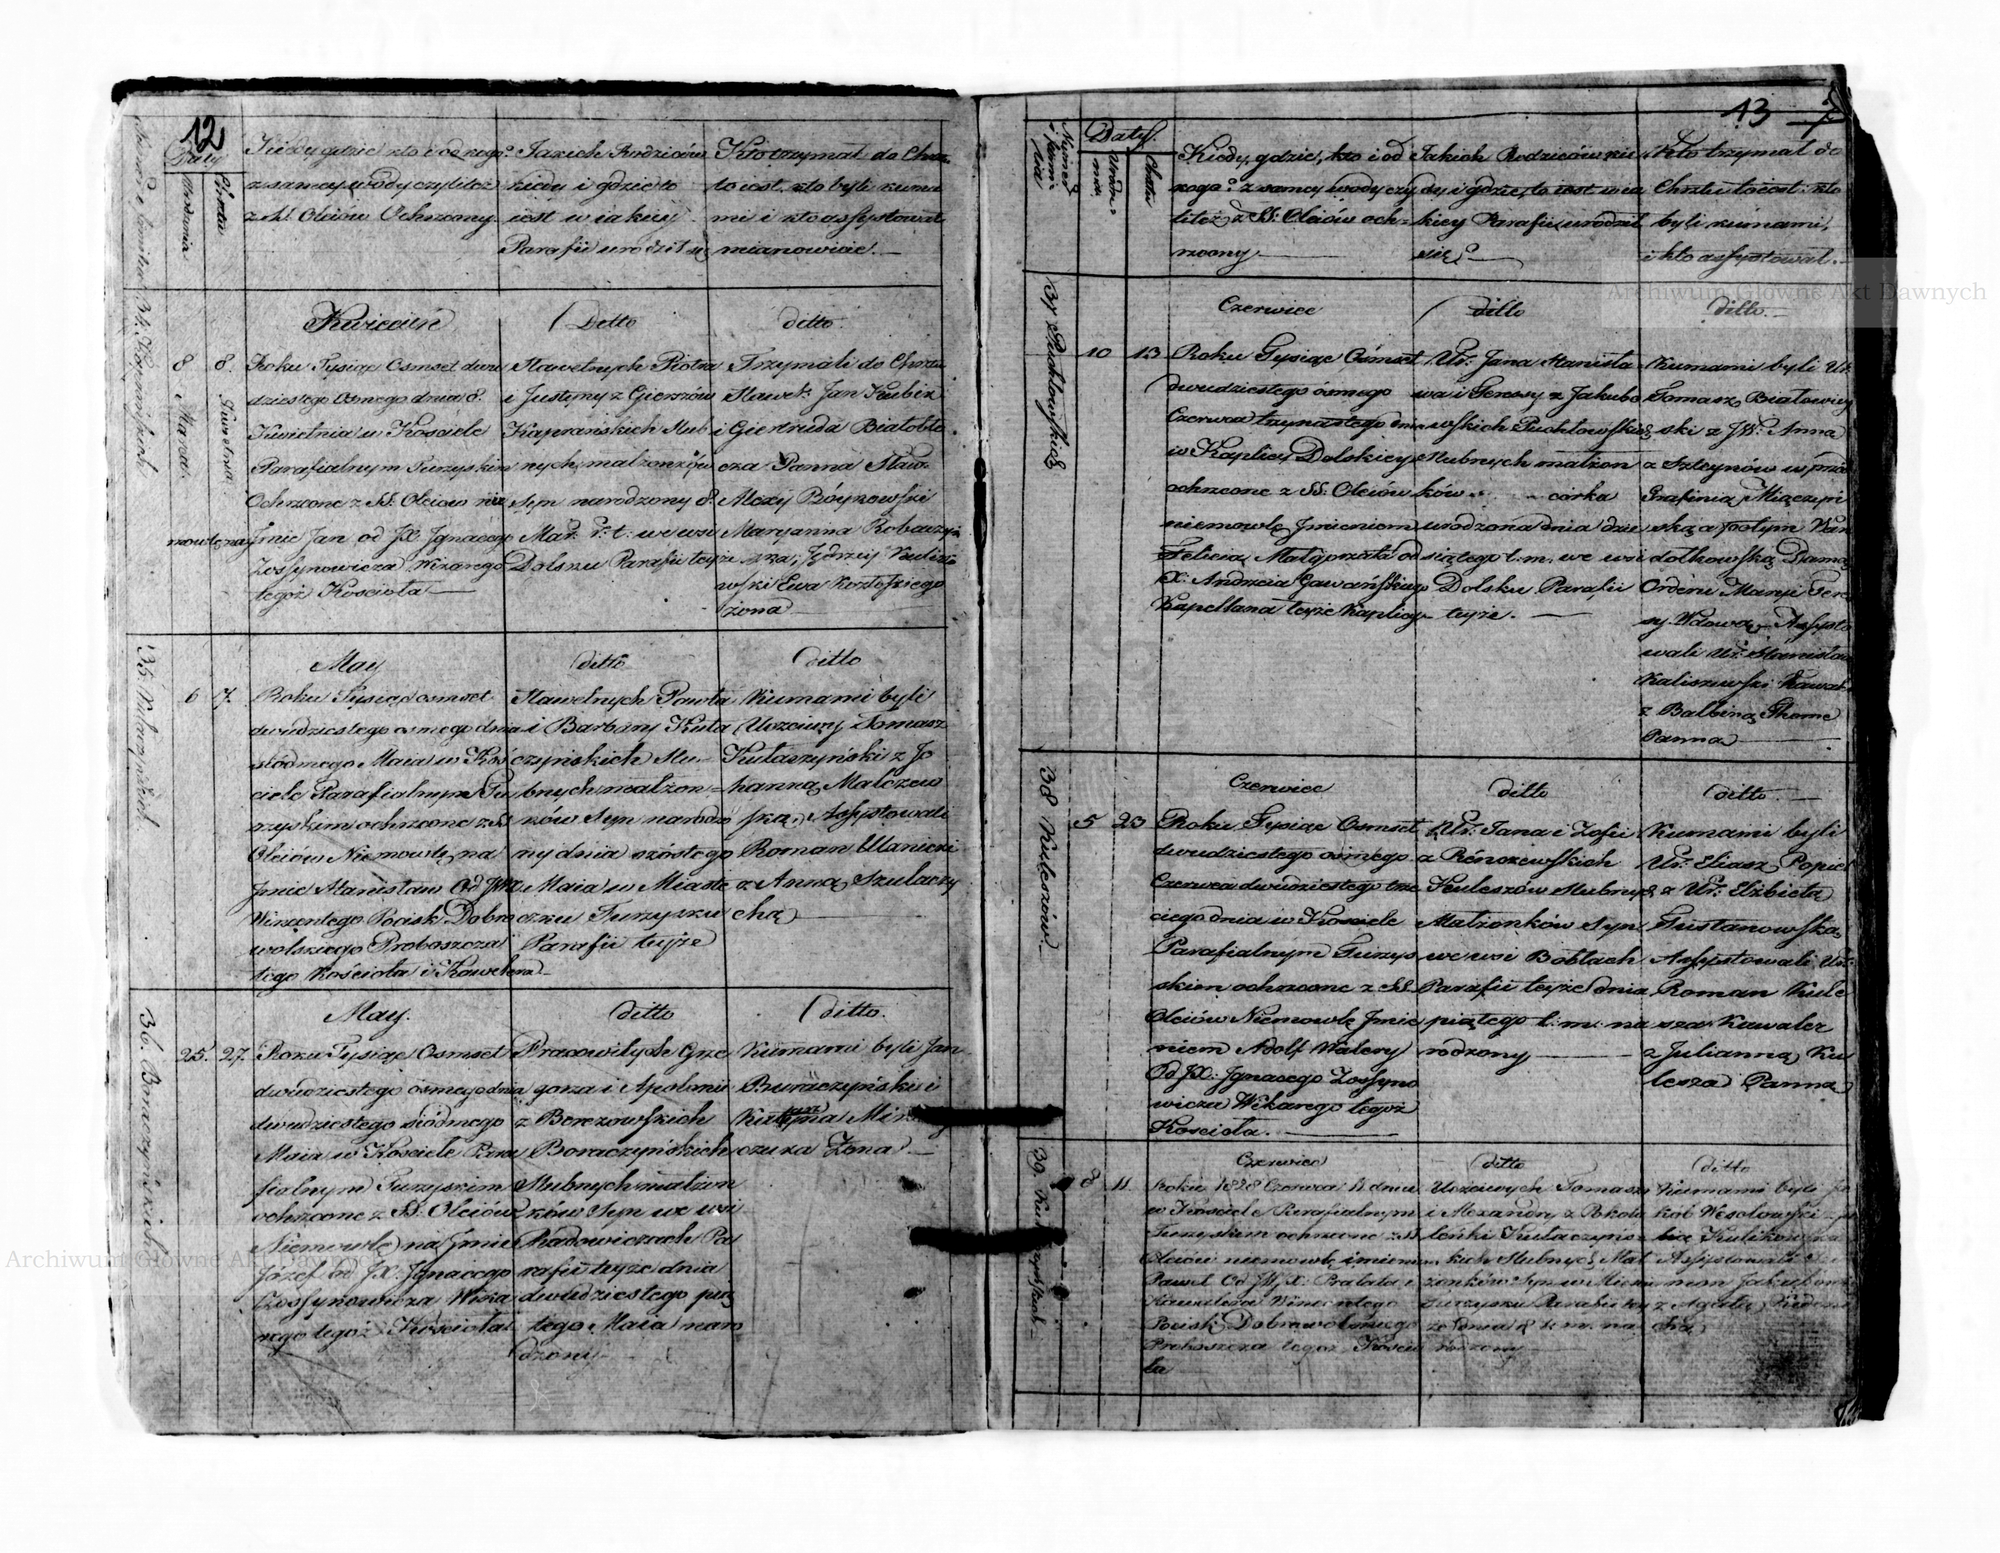 12
Daty
Urodzenia
Chrztu
Kiedy gdzie kto i od kogo?
z samey wody czy też
z SS. Oleiów Ochrzcony.
Jakich Rodziców
kiedy i gdzie to
iest w iakiey
Parafii urodził się
Kto trzymał do Chrz-
tu iest. kto byli kuma
mi i kto assystował
mianowicie. —
34.
8 8.
Marca.
Kwietnia
Kwiecień
Roku Tysiąc Osmset dwu
dziestego Osmego dnia 8.
Kwietnia w Kosciele
Parafialnym Turzyskim
Ochrzcone z SS. Oleiow nie
mowlę na Jmie Jan od JX Jgnacego
Zossynowicza Wikarego
tegoż Kościoła —
Detto
Sławetnych Piotra
i Justyny z Gierszów
Kaprańskich Slub
nych małżonków
Syn narodzony 8.
Mar. r. t. we wsi
Dolsku Parafii teyże
ditto.
Trzymali do Chrztu
Sławet: Jan Kubin
i Giertruda Białoble
cza Panna Sław.
Alexy Bóynowski
Maryanna
Ewa
żona —
35.
6 7.
May
Roku Tysiąc osmset
dwudziestego osmego dnia
siódmego Maia w Koś
ciele Parafialnym Tu
rzyskim ochrzcone z SS
Oleiów Niemowlę na
Jmie Stanisław Od JWX
Wincentego Pocisk Dobro
wolskiego Proboszcza
tego Kościoła i Kawalera —
ditto
Sławetnych Pawła
i Barbary Kuła
czyńskich Slu-
bnych małżon =
ków Syn narodzo
ny dnia szóstego
Maia w Miaste
czku Turzysku
Parafii teyże
ditto
Kumami byli
Uczciwy Tomasz
Kułaczyński z Jo
hanną Malczew
ską, Assystowali
Roman Ulanicki
z Anną Szulaczy
chą —
36. Boraczyńskich
25. 27.
May.
Roku Tysiąc Osmset
dwudziestego ósmego dnia
dwudziestego siódmego
Maia w Kościele Para
fialnym Turzyskim
ochrzcone z SS. Oleiów
Niemowlę na Jmie
Józef od JX. Jgnacego
Zossynowicza Wika
rego tegoż Kościoła
ditto
Pracowitych Grze
gorza i Apolonii
z Berezowskich
Boraczyńskich
Slubnych małżon
ków Syn we wsi
Radowiczach Pa
rafii teyże dnia
dwudziestego pią
tego Maia naro
dzony —
ditto.
Kumami byli Jan
Buraczyński i
czuka Żona —
13
Numer
i Famil
lia
Daty.
Urodze
nia
Chrztu
Kiedy, gdzie, kto i od
kogo? z samey wody czy
też z SS: Oleiów och-
rzcony —
Jakich Rodziców kie
dy i gdzie, to iest w ia
kiey Parafii urodził
się? —
Kto trzymał do
Chrztu to iest: kto
byli kumami,
i kto assystował. —
37 Puchłowskich
10 13
Czerwiec
Roku Tysiąc Osmset
dwudziestego ósmego
Czerwca trzynastego dnia
w Kaplicy Dolskiey
ochrzcone z SS: Oleiów
niemowlę Jmieniem
Felicia, Małgorzata od
X: Andrzeia Gaweńskiego
Kapellana teyże Kaplicy
ditto
Ur: Jana Stanisła
wa i Teressy z Jakubo
wskich Puchłowskich
Slubnych małżon
ków - córka
urodzona dnia dzie
siątego t: m: we wsi
Dolsku Parafii
teyże. —
ditto. —
Kumami byli Ur:
Tomasz Białowiey
ski z JW: Anna
z Szteynów
Grafinią Miączyń
ską a potym Wan
dolkowską Damą
Orderu Maryi Tere
sy Wdową — Assysto
wali Ur: Stanisław
Kaliszewski Kawal:
z Balbiną Thome
Panna —
38 Kuleszów —
5 23
Czerwiec
Roku Tysiąc Osmset
dwudziestego osmego
Czerwca dwudziestego trze
ciego dnia w Kosciele
Parafialnym Turzys
skim ochrzcone z SS
Oleiów Niemowlę Jmie
niem Adolf Walery
Od JX: Jgnacego Zossyno
wicza Wikarego tegoż
Kościoła. —
ditto
Ur: Jana i Zofii
z Rénczewskich
Kuleszów Slubnych
Małżonków Syn
we wsi Bobłach
Parafii teyże dnia
piątego t: m: na
rodzony —
ditto. —
Kumami byli
Ur: Eliasz Popiel
z Ur: Elżbietą
Tustanowską
Assystowali Ur:
Roman Kule
sza Kawaler
z Julianną Ku
lesza Panną
39.
8 11
Czerwiec
Roku 1828 Czerwca 11 dnia
w Kosciele Parafialnym
Turzyskim ochrzcone z SS
Oleiów niemowlę imieniem
Paweł Od JWJX: Prałata i
Kawalera Wincentego
Pocisk Dobrowolskiego
Proboszcza tegoż Koscio
ła
ditto
Uczciwych Tomasza
i Alexandry z Pokoła
Kułaczyńs
kich Slubnych Mał
żonków Syn w Miaste
Turzysku Parafii tey
że dnia 8 t: m. na
rodzony —
ditto
Kumami byli Ja
kób Wesołowski
Assystowali
z Agatą
Archiwum Główne Akt Dawnych
Archiwum Główne Akt Dawnych